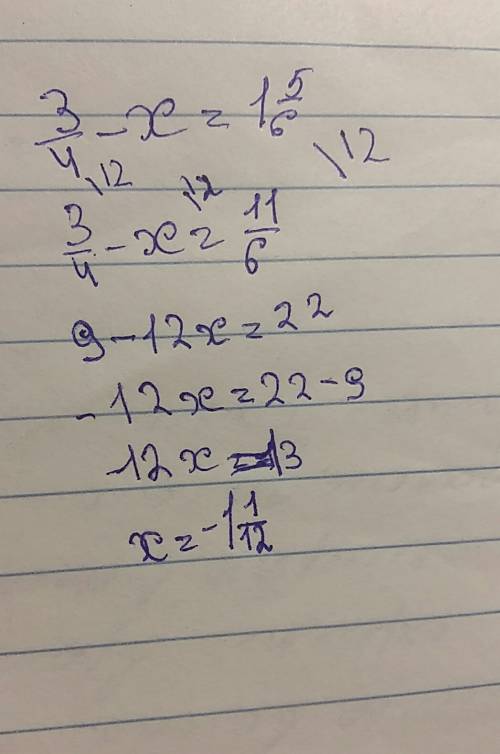 3/4 - x = 1 5/6 \12
3/4 \12 - x \12 = 11/6
9 - 12x = 22
-12x = 22 - 9
12x = -13
x = -1 1/12